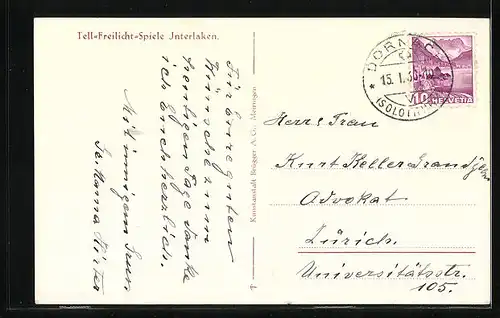 Tell-Freilicht-Spiele Interlaken.
Für Eure guten
Wünsche zum
heutigen Tage danke
ich Euch herzlich.
Mit innigem Gruss
Kunstanstalt Brügger A. G. Meiringen
DORNACH
15. I. 36
(SOLOTHURN)
10 HELVETIA
Herr & Frau
Kurt Keller
Advokat
Zürich.
Universitätsstr.
105.